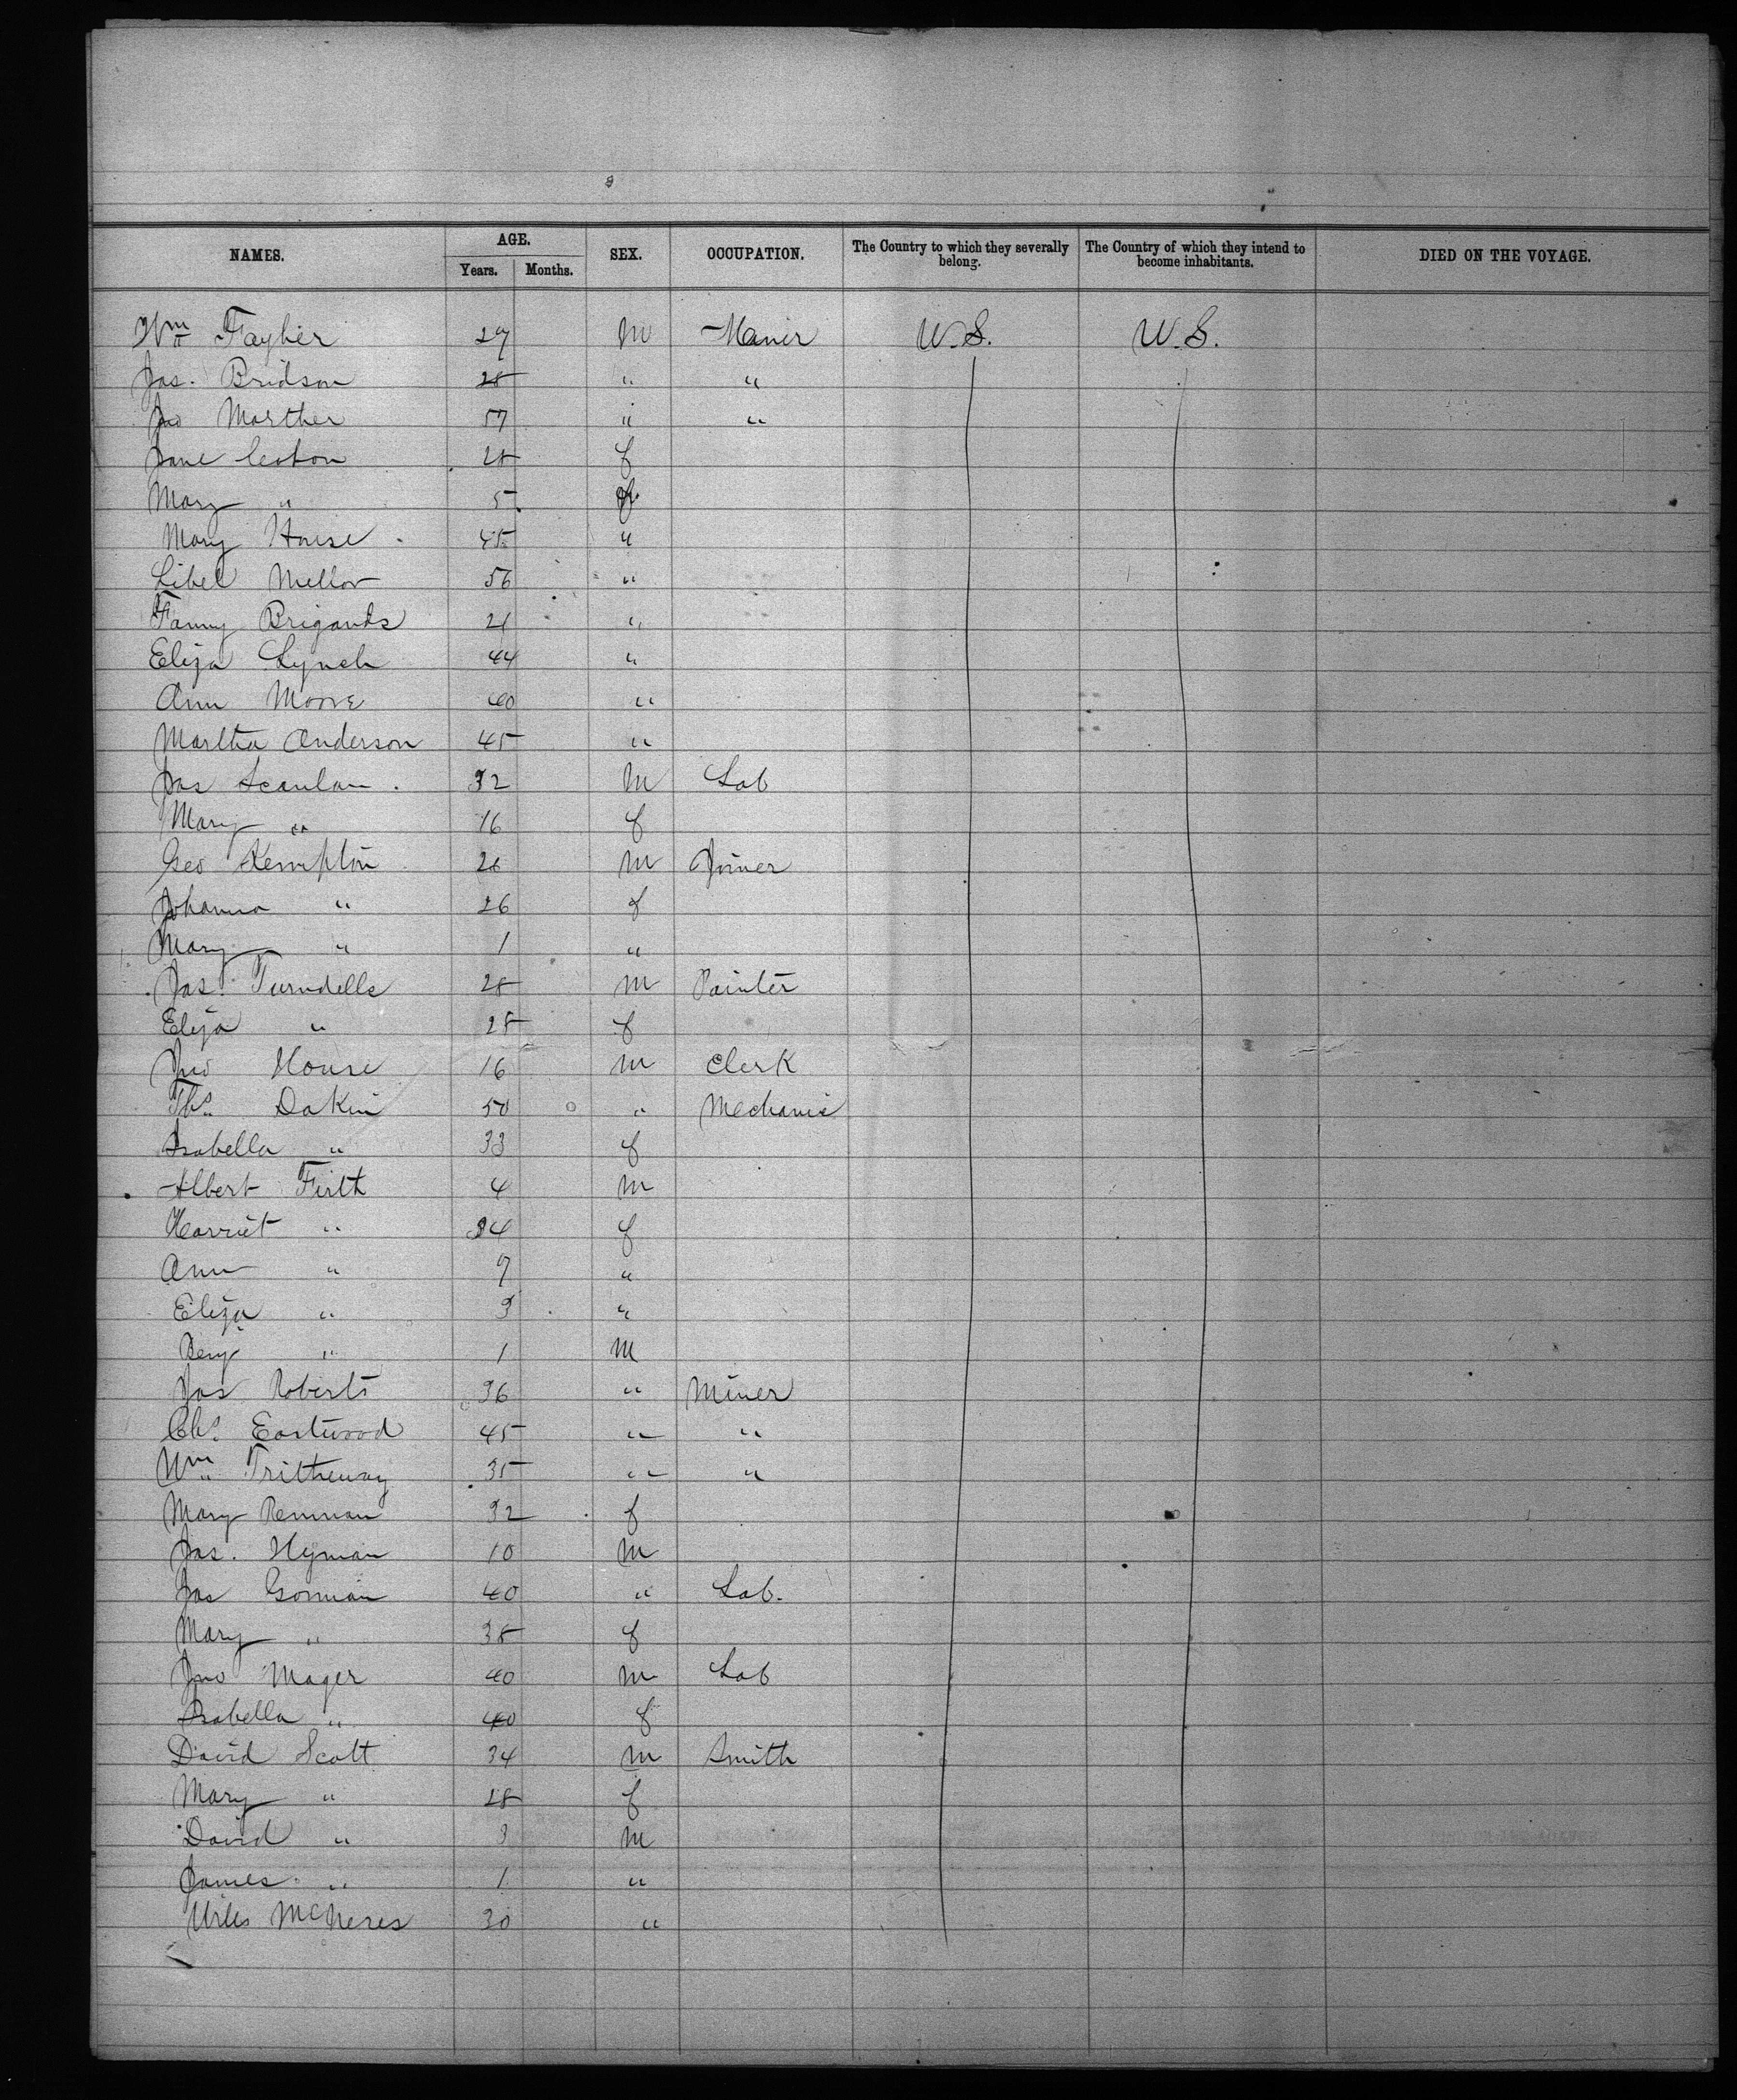 NAMES. AGE. SEX. OCCUPATION. The Country to which they severally belong. The Country of which they intend to become inhabitants. DIED ON THE VOYAGE.
Years. Months.
Wm Fayher 27 m U.S. U.S.
Jas. Bridson 28 " "
Jno Marther 57 " "
Jane 28 f
Mary " 5 f
Mary House 45 "
Libel Mellor 56 "
Fanny Brigands 21 "
Eliza Lynch 44 "
Ann Moore 40 "
Martha Anderson 45 "
Jas Scanlan. 32 m Lab
Mary " 16 f
Geo Kempton 26 m Joiner
Johanna " 26 f
Mary " 1 "
Jas. Turndells 28 m Painter
Eliza " 28 f
Jno House 16 m Clerk
Ths Dakin 50 " Mechanic
Isabella " 33 f
Albert Firth 4 m
Harriet " 34 f
Ann " 7 "
Eliza " 3 "
Benj " 1 m
Jas Roberts 36 " Miner
Chs Eastwood 45 " "
Wm Tritheway 35 " "
Mary Penman 32 f
Jas. Hyman 10 m
Jas Gorman 40 " Lab.
Mary " 38 f
Jno Mager 40 m Lab
Isabella " 40 f
David Scott 34 m Smith
Mary " 28 f
David " 3 m
James " 1 "
McNeres 30 "